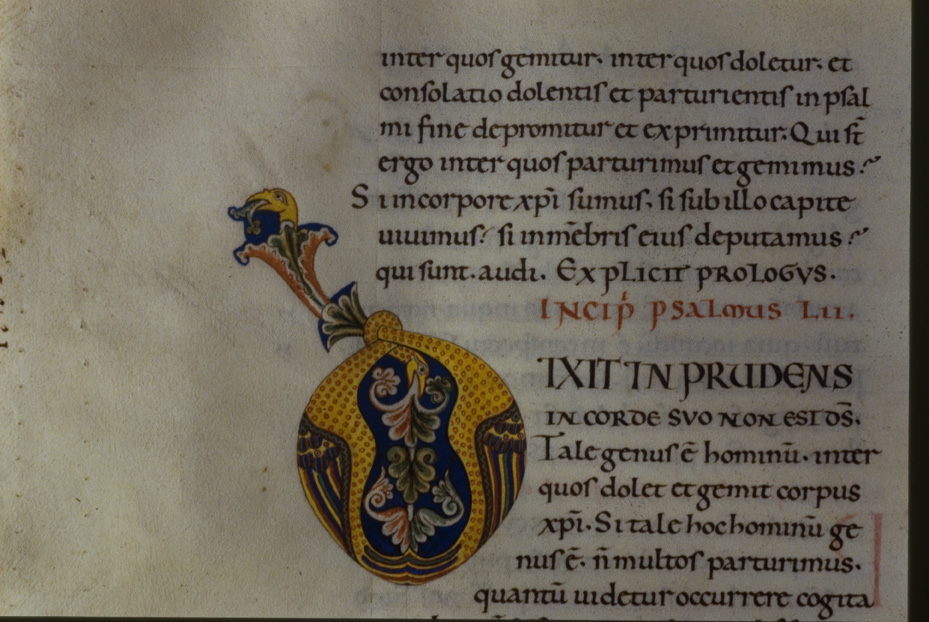 inter quos gemitur. inter quos doletur. et
consolatio dolentis et parturientis in psal
mi fine depromitur et exprimitur. Qui st̄
ergo inter quos parturimus et gemimus?
Si in corpore xp̄i sumus. si sub illo capite
uiuimus? si in mēbris eius deputamus?
qui sunt. audi. EXPLICIT PROLOGVS.
INCIP̄ PSALMUS LII.
IXIT INPRUDENS
IN CORDE SVO NON EST DS̄.
Tale genus ē hominū. inter
quos dolet et gemit corpus
xp̄i. Si tale hoc hominū ge
nus ē. n̄ multos parturimus.
quantū uidetur occurrere cogita